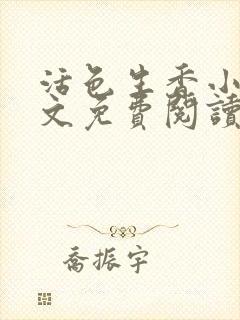 活色生香小
文免費閱讀
喬振宇